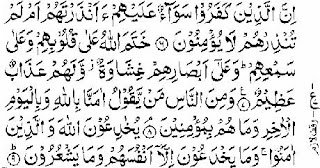 اِنَّ الَّذِيْنَ كَفَرُوْا سَوَآءٌ عَلَيْهِمْ ءَاَنْذَرْتَهُمْ اَمْ لَمْ
تُنْذِرْهُمْ لَا يُؤْمِنُوْنَ ۝۶ خَتَمَ اللّٰهُ عَلٰى قُلُوْبِهِمْ وَعَلٰى
سَمْعِهِمْ ؕ وَعَلٰۤى اَبْصَارِهِمْ غِشَاوَةٌ ؗ وَّلَهُمْ عَذَابٌ
عَظِيْمٌ ۝۷ وَمِنَ النَّاسِ مَنْ يَّقُوْلُ اٰمَنَّا بِاللّٰهِ وَبِالْيَوْمِ
الْاٰخِرِ وَمَا هُمْ بِمُؤْمِنِيْنَ ۝۸ يُخٰدِعُوْنَ اللّٰهَ وَالَّذِيْنَ
اٰمَنُوْا ۚ وَمَا يَخْدَعُوْنَ اِلَّاۤ اَنْفُسَهُمْ وَمَا يَشْعُرُوْنَ ۝۹